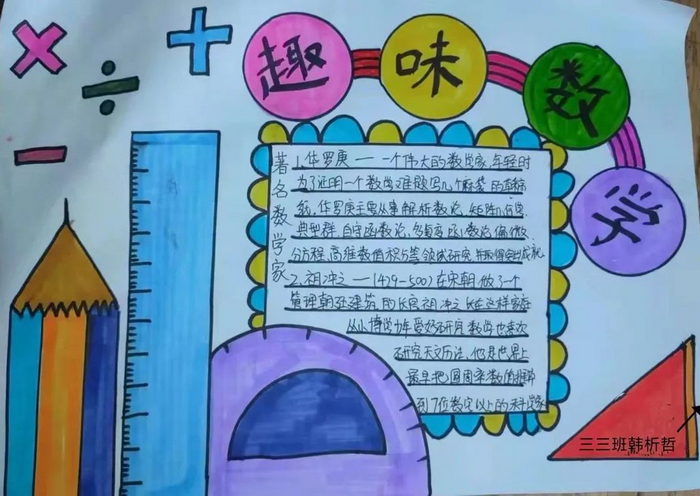 趣味数学
著名数学家
1、华罗庚——一个伟大的数学家,年轻时
为了证明一个数学难题写几个麻袋的
华罗庚主要从事解析数论,矩阵几何学
典型群,自守函数论,多复
高维数值积分等领域研究
2、祖冲之——(429-500)在宋朝做了一个
管理朝廷建筑的长官祖冲之长在这样家庭
从小博学少年爱好研究数学也喜欢
研究天文历法,他是世界上
最早把圆周率数值推算
到7位数字以上的科学家
三三班韩析哲